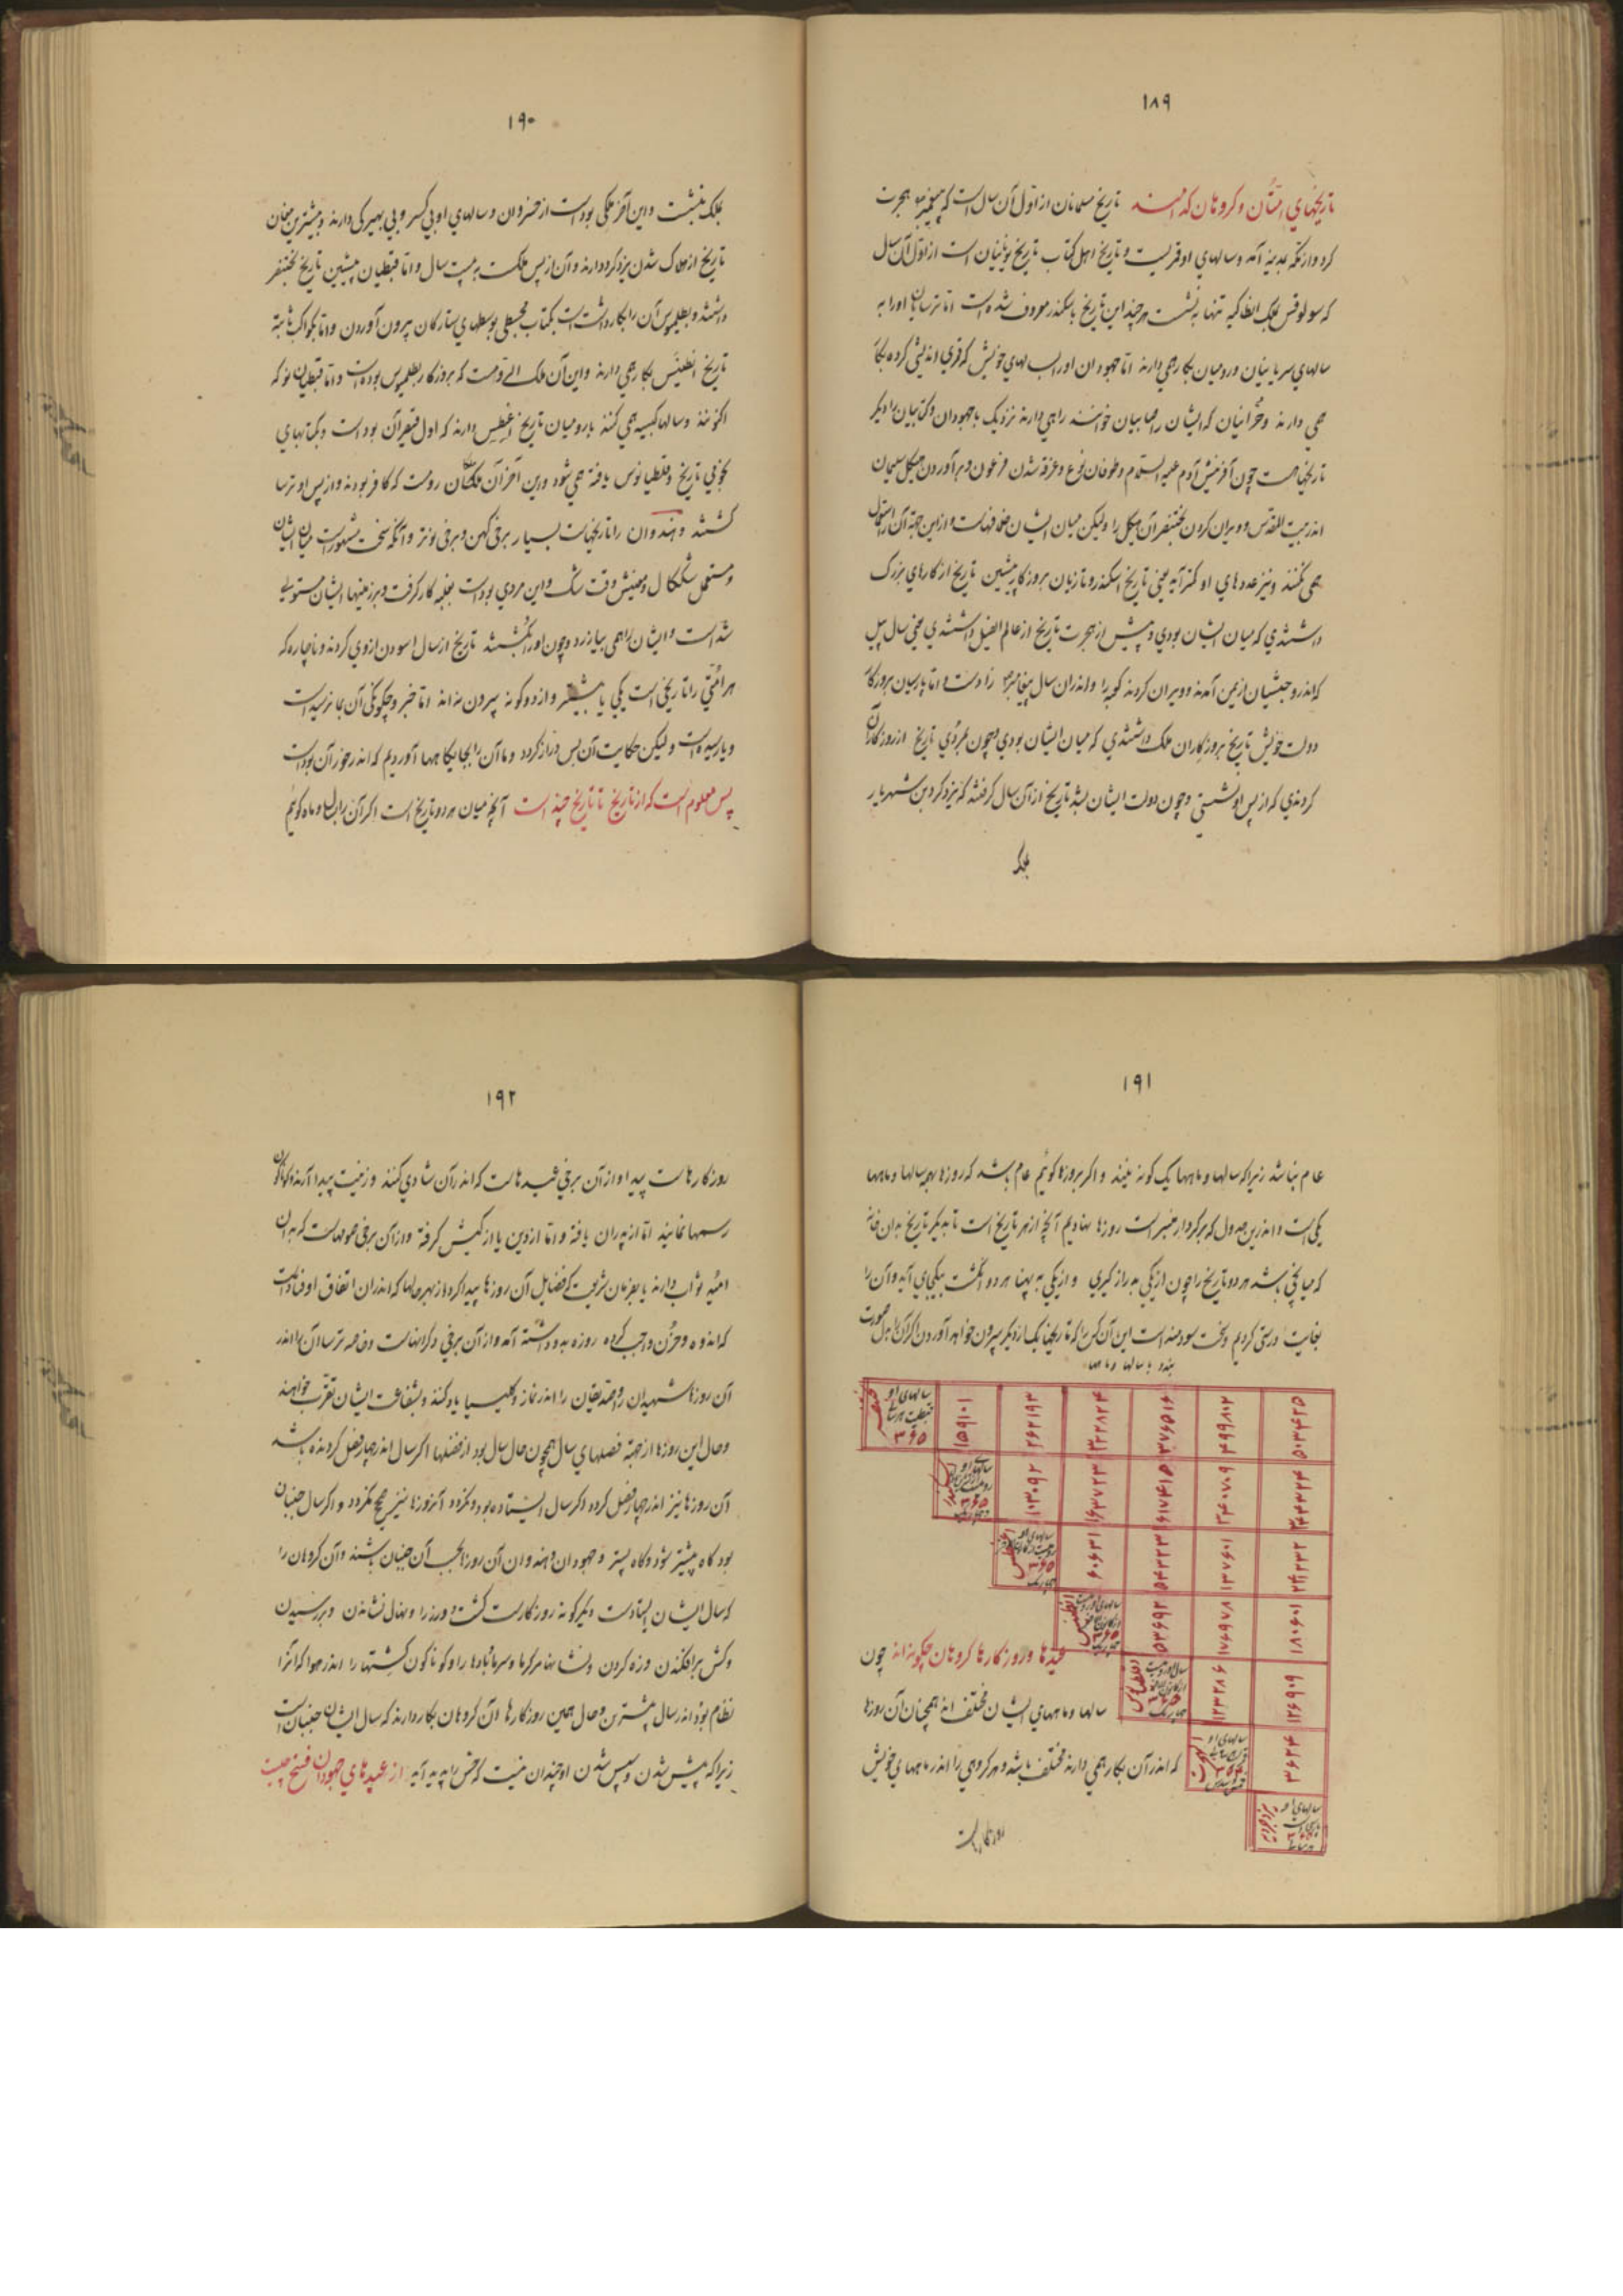 ۱۸۹
تاریخهای امتان و گروهان کدامند تاریخ مسلمانان از اول آن سال است که پیغمبر هجرت
کرد و از مکه بمدینه آمد و سالهای او قمریست و تاریخ اهل کتاب تاریخ یونانیان است از اول آن سال
که سولوقس ملک انطاکیه تنها بنشست هر چند این تاریخ باسکندر معروف شده است اما ترسایان اورا به
سالهای سریانیان و رومیان بکار همی دارند اما جهودان اورا بسالهای خویش که قمری اند
همی دارند و حرانیان که ایشان را صابیان خوانند را همی دارند نزدیک با جهودان و کتابیان را دیگر
تاریخها است چون آفرینش آدم علیه السلام و طوفان نوح و غرقه شدن فرعون و برآوردن هیکل سلیمان
اندر بیت المقدس و ویران کردن بختنصر آن هیکل را ولیکن میان ایشان خلافهاست و از این جهة آن را استعمال
همی نکنند و نیز عددهای او کمتر آید یعنی تاریخ اسکندر و تازیان بروزگار پیشین تاریخ از کارهای بزرگ
داشتندی که میان ایشان بودی و پیش از هجرت تاریخ از عام الفیل داشتندی یعنی سال پیل
که اندرو حبشیان از یمن آمدند و ویران کردند کعبه را و اندران سال پیغامبر زاد است و اما پارسیان بروزگار
دولت خویش تاریخ بروزگاران ملک داشتندی که میان ایشان بودی و چون بمردی تاریخ از روزگار آن
کردندی که از پس او نشستی و چون دولت ایشان بشد تاریخ از آن سال گرفتند که یزدگرد بن شهریار
بملک
۱۹۰
بملک بنشست و این آخر ملکی بودست از خسروان و سالهای او بی کسر و بی بهیزکی دارند و بیشترین مغان
تاریخ از هلاک شدن یزدگرد دارند و آن از پس ملکست به بیست سال و اما قبطیان پیشین تاریخ بختنصر
داشتند و بطلمیوس آن را بکار داشت است بکتاب مجسطی بوسطهای ستارگان بیرون آوردن و اما بکواکب ثابته
تاریخ انطینس بکار همی دارند و این آن ملک است که بروزگار بطلمیوس بوده است و اما قبطیان نو که
اکنونند و سالها کبیسه همی کنند با رومیان تاریخ اغسطس دارند که اول قیصر آن بودست و بکتابهای
نجومی تاریخ دقلطیانوس یافته همی شود و این آخر آن ملکان رومست که کافر بودند و از پس او ترسا
گشتند و هندوان را تاریخهاست بسیار برخی کهن و برخی نوتر و آنکه سخت مشهورست میان ایشان
و مستعمل شککال و معنیش وقت شک و این مردی بودست بغلبه کار گرفت و بر زمینها ایشان مستولی
شدست و ایشان را همی بیازرد و چون اورا بکشتند تاریخ از سال آسودن از وی کردند و ناچاره که
هر امتی را تاریخی است یکی یا بیشتر و از دو گونه بیرون نه اند اما خبر و چگونگی آن بما نرسیدست
و یا رسیدست ولیکن حکایت آن بس دراز گردد و ما آن را بجایگاهها آوردیم که اندر خور آن بودست
پس معلوم است که از تاریخ تا تاریخ چند است آنچه میان هر دو تاریخ است اگر آن را بسال و ماه گوئیم
۱۹۱
عام نباشد زیرا که سالها و ماهها یک گونه نیند و اگر بروزها گوئیم عام باشد که روزها بهمه سالها و ماهها
یکی است و اندرین جدول که بر کردار منبر است روزها بنهادیم آنچه از هر تاریخ است تا بدیگر تاریخ بدان خانه
که میانجی باشد هر دو تاریخ را چون از یکی به راز گیری و از یکی به پهنا هر دو انگشت بیکجای آید و آن را
بغایت درستی کردیم و سخت سودمند است این آن کس را که تاریخها یک از دیگر بیرون خواهد آوردن
بسالها و ماهها
سالهای او قبطیست هر سالی ۳۶۵
۱۵۹۱۰۱ ۲۶۲۱۹۳ ۳۲۲۸۲۴ ۳۷۶۵۱۶ ۴۹۹۸۰۲ ۵۰۳۴۲۵
۱۰۳۰۹۲ ۱۶۳۷۲۳ ۳۴۰۷۰۹ ۳۴۴۳۲۴
۶۰۶۳۱ ۵۴۳۲۳ ۲۴۱۲۳۲
۵۳۶۹۲ ۱۷۶۹۷۸ ۱۸۰۶۰۱
۱۲۳۲۸۶ ۱۲۶۹۰۹
۳۶۲۴
عیدها و روزگارها گروهان چگونه اند چون
سالها و ماههای ایشان مختلف اند همچنان آن روزها
که اندر آن بکار همی دارند مختلف باشد و هر گروهی را اندر ماههای خویش
روزگارهاست
۱۹۲
روزگارهاست پیدا و از آن برخی عیدهاست که اندر آن شادی کنند و زینت پیدا آرند و گوناگون
رسمها نمایند اما از پدران یافته و اما از دین یا از کیش گرفته و از آن برخی صومهاست که بدان
امید ثواب دارند یا بفرمان شریعت که فضایل آن روزها پیدا کرد و از بهر حالها که اندران اتفاق اوفتادست
که اندوه و حزن واجب کرده روزه بدو داشته آمد و از آن برخی ذکرانهاست و خاصه ترسا آن را اندر
آن روزها شهیدان و صدیقان را اندر نماز و کلیسیا یاد کنند و بشفاعت ایشان تقرب خواهند
و حال این روزها از جهة فصلهای سال همچون حال سال بود از فصلها اگر سال اندر چهار فصل گردنده باشد
آن روزها نیز اندر چهار فصل گردد و اگر سال ایستاده بود و نگردد آن روزها نیز هیچ نگردد و اگر سال جنبان
بود گاه پیشتر شود و گاه پستر و جهودان و هندوان آن روزها بحسب آن جنبان باشند و آن گروهان را
که سال ایشان ایستادست دیگر گونه روزگارست کشت و ورز را و نهال نشاندن و بررسیدن
و گشن برافکندن و زه کردن و نشانها مر گرما و سرما و بادها را و گوناگون گشتنها را اندر هوا که آن را
نظام بود اندر سال بیشترین و حال همین روزگارها آن گروهان بکار دارند که سال ایشان جنبان است
زیرا که پیش شدن و سپس شدن او چندان نیست که حس را پدید آید از عیدهای جهودان فسح چیست